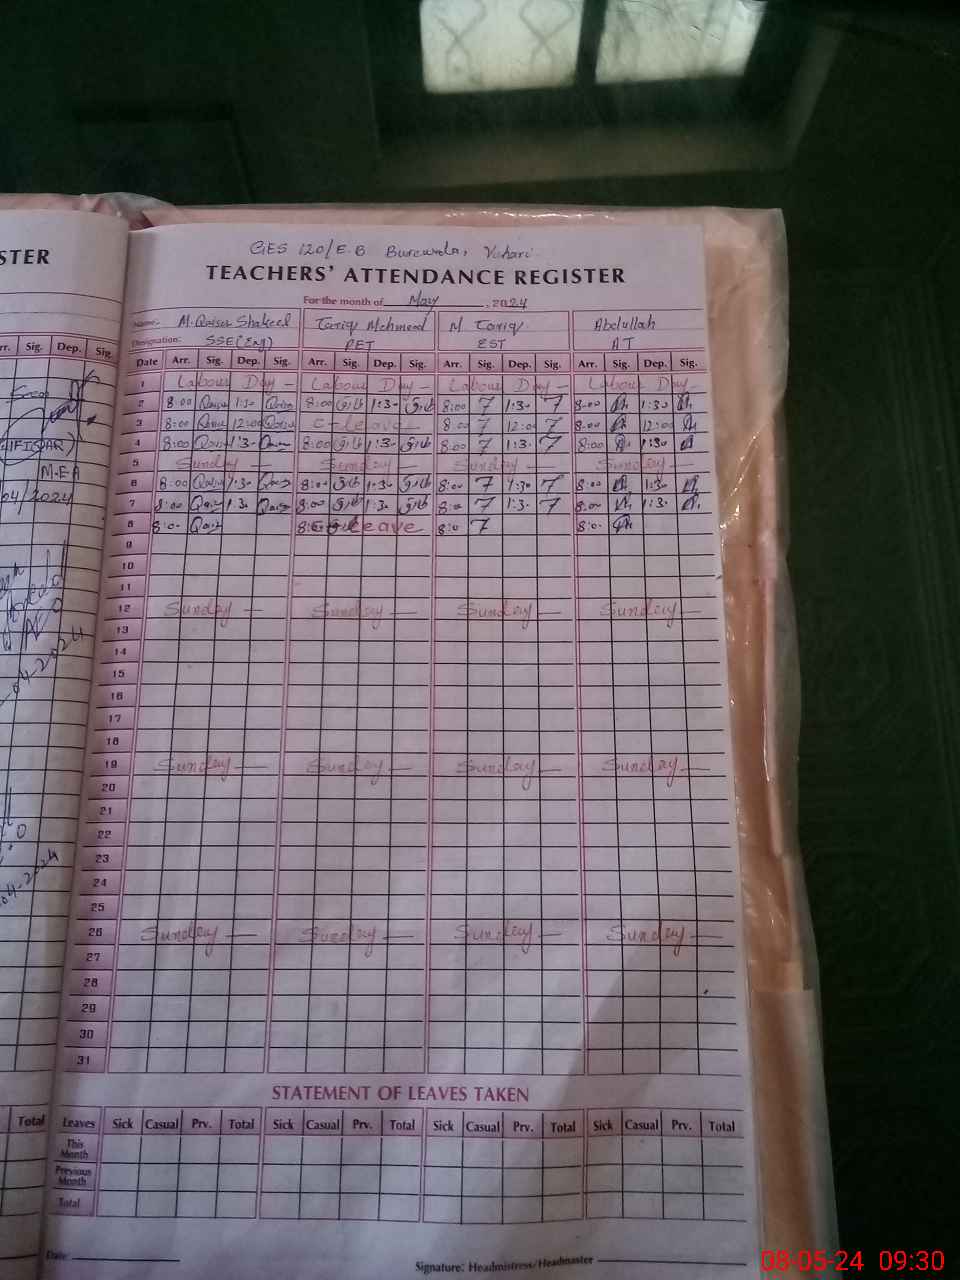 STER
GES 120/E.B Burewala, Vehari
TEACHERS' ATTENDANCE REGISTER
For the month of May , 2024
Name: M. Qaiser Shakeel Tariq Mehmood M Tariq Abdullah
Designation: SSE(Eng) PET EST AT
rr. Sig. Dep. Sig. Date Arr. Sig. Dep. Sig. Arr. Sig. Dep. Sig. Arr. Sig. Dep. Sig. Arr. Sig. Dep. Sig.
1 Labour Day - Labour Day - Labour Day - Labour Day -
2 8:00 Qaiser 1:30 Qaiser 8:00 1:30 8:00 1:30 8:00 1:30
3 8:00 Qaiser 12:00 Qaiser C-leave 8:00 12:00 8:00 12:00
4 8:00 Qaiser 1:30 Qaiser 8:00 1:30 8:00 1:30 8:00 1:30
5 Sunday — Sunday — Sunday — Sunday —
M.E.A
6 8:00 Qaiser 1:30 Qaiser 8:00 1:30 8:00 1:30 8:00 1:30
04/2024
7 8:00 Qaiser 1:30 Qaiser 8:00 1:30 8:00 1:30 8:00 1:30
8 8:0 Qaiser leave 8:0 8:0
9
10
11
12 Sunday — Sunday — Sunday — Sunday —
13
14
-04-2024
15
16
17
18
19 Sunday — Sunday — Sunday — Sunday —
20
21
22
23
04-2024
24
25
26 Sunday — Sunday — Sunday — Sunday —
27
28
29
30
31
STATEMENT OF LEAVES TAKEN
Total Leaves Sick Casual Prv. Total Sick Casual Prv. Total Sick Casual Prv. Total Sick Casual Prv. Total
This Month
Previous Month
Total
Date:
Signature: Headmistress/Headmaster
08-05-24 09:30